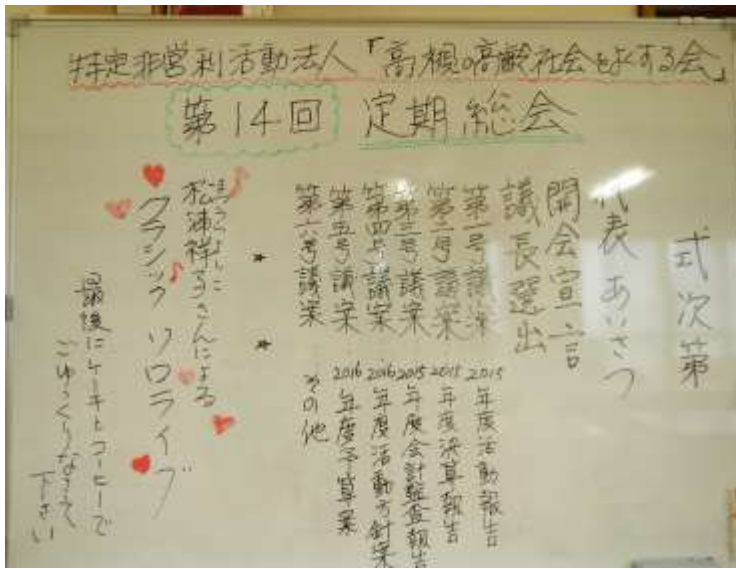 特定非営利活動法人「高根の高齢社会をよくする会」
第14回 定期総会
式次第
代表 あいさつ
開会宣言
議長選出
第一号議案 2015年度活動報告
第二号議案 2015年度決算報告
第三号議案 2015年度会計監査報告
第四号議案 2016年度活動方針案
第五号議案 2016年度予算案
第六号議案 その他
松浦祥子さんによる
クラシック ソロライブ
最後にケーキとコーヒーで
ごゆっくりなさって
下さい